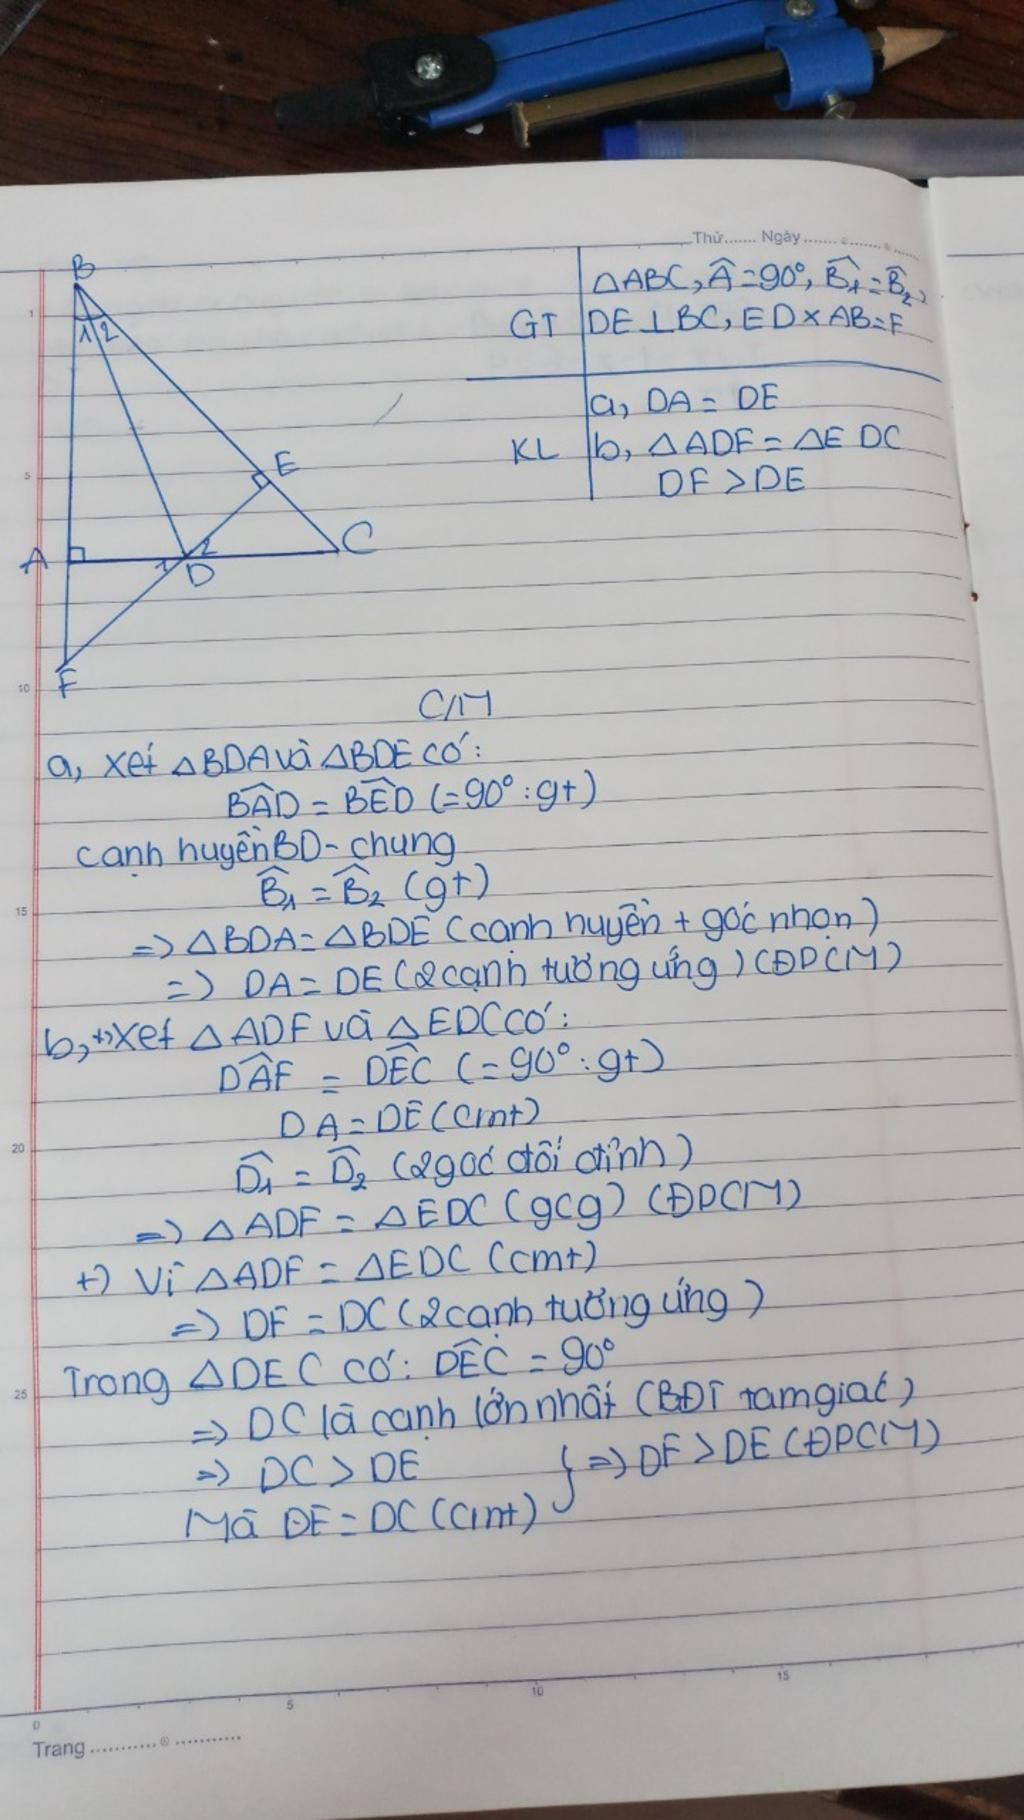 Thứ....... Ngày
B
1 2
E
A
C
1 2
D
F
GT
△ABC, Â=90°, B̂₁=B̂₂,
DE⊥BC, ED×AB=F
KL
a, DA= DE
b, △ADF=△EDC
DF>DE
C/M
a, xét △BDA và △BDE có:
BÂD = BÊD (=90°: gt)
cạnh huyền BD- chung
B̂₁ = B̂₂ (gt)
=> △BDA=△BDE (cạnh huyền + góc nhọn)
=> DA= DE (2 cạnh tương ứng) (ĐPCM)
b, +) xét △ADF và △EDC có:
DÂF = DÊC (=90°: gt)
DA=DE (cmt)
D̂₁ = D̂₂ (2 góc đối đỉnh)
=> △ADF = △EDC (gcg) (ĐPCM)
+) Vì △ADF = △EDC (cmt)
=> DF = DC (2 cạnh tương ứng)
Trong △DEC có: DÊC = 90°
=> DC là cạnh lớn nhất (BĐT tam giác)
=> DC > DE } => DF>DE (ĐPCM)
Mà DF=DC (cmt)
1
5
10
15
20
25
0 5 10 15
Trang